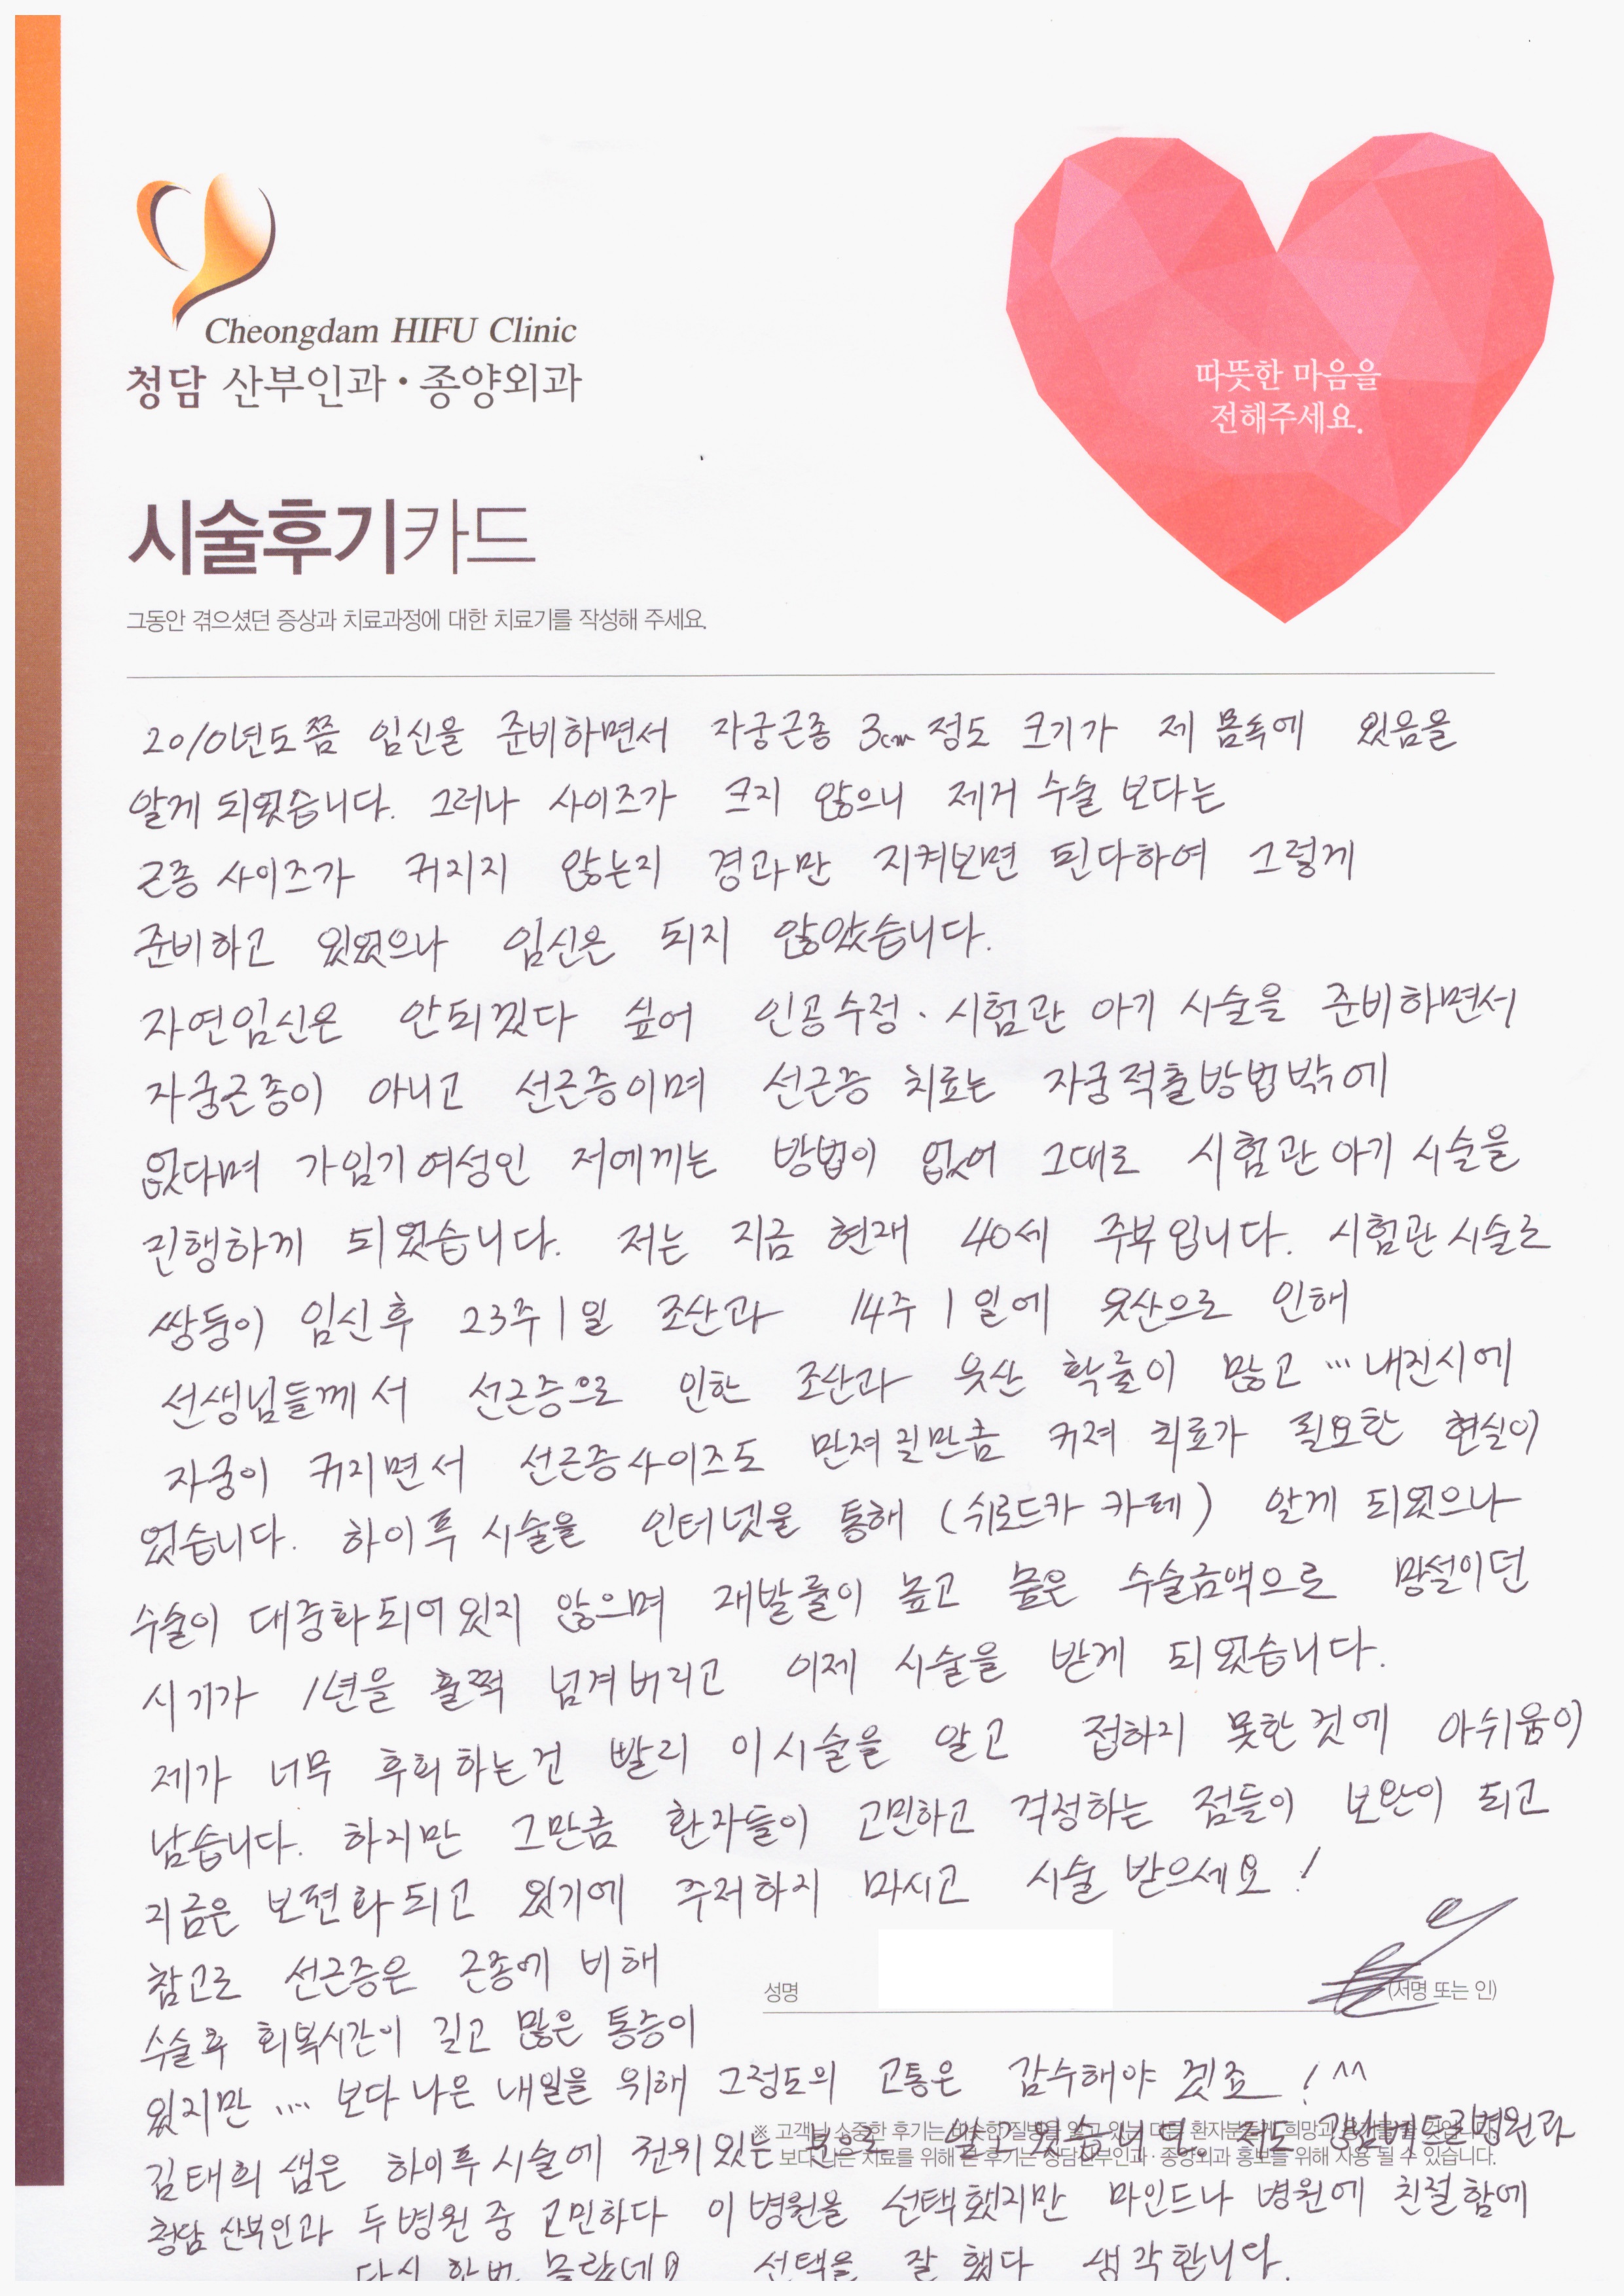 Cheongdam HIFU Clinic
청담 산부인과·종양외과
따뜻한 마음을
전해주세요.
시술후기카드
그동안 겪으셨던 증상과 치료과정에 대한 치료기를 작성해 주세요.
2010년도쯤 임신을 준비하면서 자궁근종 3cm 정도 크기가 제 몸속에 있음을
알게 되었습니다. 그러나 사이즈가 크지 않으니 제거 수술 보다는
근종 사이즈가 커지지 않는지 경과만 지켜보면 된다하여 그렇게
준비하고 있었으나 임신은 되지 않았습니다.
자연임신은 안되겠다 싶어 인공수정·시험관 아기 시술을 준비하면서
자궁근종이 아니고 선근증이며 선근증 치료는 자궁적출방법밖에
없다며 가임기여성인 저에게는 방법이 없어 그대로 시험관아기 시술을
진행하게 되었습니다. 저는 지금 현재 40세 주부입니다. 시험관시술로
쌍둥이 임신후 23주1일 조산과 14주 1일에 유산으로 인해
선생님들께서 선근증으로 인한 조산과 유산 확률이 많고 ... 내진시에
자궁이 커지면서 선근증사이즈도 만져질만큼 커져 치료가 필요한 현실이
었습니다. 하이푸 시술을 인터넷을 통해 (쉬로드카 카페) 알게 되었으나
수술이 대중화되어있지 않으며 재발률이 높고 높은 수술금액으로 망설이던
시기가 1년을 훌쩍 넘겨버리고 이제 시술을 받게 되었습니다.
제가 너무 후회하는건 빨리 이시술을 알고 접하지 못한것에 아쉬움이
남습니다. 하지만 그만큼 환자들이 고민하고 걱정하는 점들이 보완이 되고
지금은 보편화되고 있기에 주저하지 마시고 시술 받으세요!
참고로 선근증은 근종에 비해
성명 (서명 또는 인)
수술후 회복시간이 길고 많은 통증이
있지만 .... 보다 나은 내일을 위해 그정도의 고통은 감수해야 겠죠! ^^
※ 고객님 소중한 후기는 비슷한 질병을 앓고 있는 다른 환자분들께 희망과
김태희 샘은 하이푸 시술에 권위있는 분으로 알고있습니다. 저도 강남베드로병원과
보다 나은 치료를 위해 본 후기는 청담산부인과·종양외과 홍보를 위해 사용 될 수 있습니다.
청담 산부인과 두병원 중 고민하다 이 병원을 선택했지만 마인드나 병원에 친절함에
다시 한번 놀랐네요 선택을 잘 했다 생각합니다.